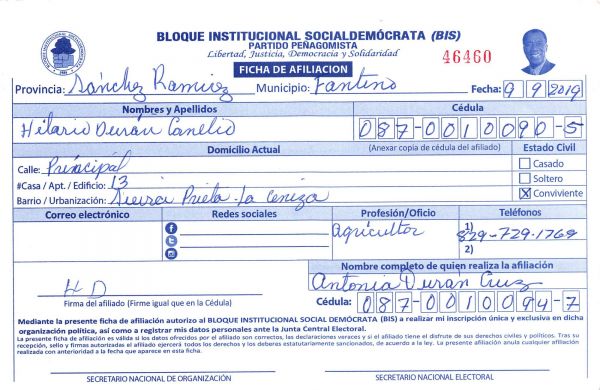 BLOQUE INSTITUCIONAL SOCIALDEMÓCRATA (BIS)
PARTIDO PEÑAGOMISTA
Libertad, Justicia, Democracia y Solidaridad
46460
FICHA DE AFILIACION
Provincia: Sánchez Ramirez Municipio: Fantino Fecha: 9 9 2019
Nombres y Apellidos Cédula
Hilario Durán Canelio 087-0010090-5
Domicilio Actual (Anexar copia de cédula del afiliado) Estado Civil
Calle: Principal Casado
#Casa / Apt. / Edificio: 13 Soltero
Barrio / Urbanización: Sierra Prieta La Ceniza X Conviviente
Correo electrónico Redes sociales Profesión/Oficio Teléfonos
Agricultor 1) 829-729-1769
2)
Nombre completo de quien realiza la afiliación
H D Antonia Durán Cruz
Firma del afiliado (Firme igual que en la Cédula) Cédula: 087-0010094-7
Mediante la presente ficha de afiliación autorizo al BLOQUE INSTITUCIONAL SOCIAL DEMÓCRATA (BIS) a realizar mi inscripción única y exclusiva en dicha
organización política, así como a registrar mis datos personales ante la Junta Central Electoral.
La presente ficha de afiliación es válida si los datos ofrecidos por el afiliado son correctos, las declaraciones veraces y si el afiliado tiene el disfrute de sus derechos civiles y políticos. Tras su
recepción, sello y firmas autorizadas el afiliado ejercerá todos los derechos y los deberas estatutariamente sancionados, de acuerdo a la ley. La presente afiliación anula cualquier afiliación
realizada con anterioridad a la fecha que aparece en esta ficha.
SECRETARIO NACIONAL DE ORGANIZACIÓN SECRETARIO NACIONAL ELECTORAL